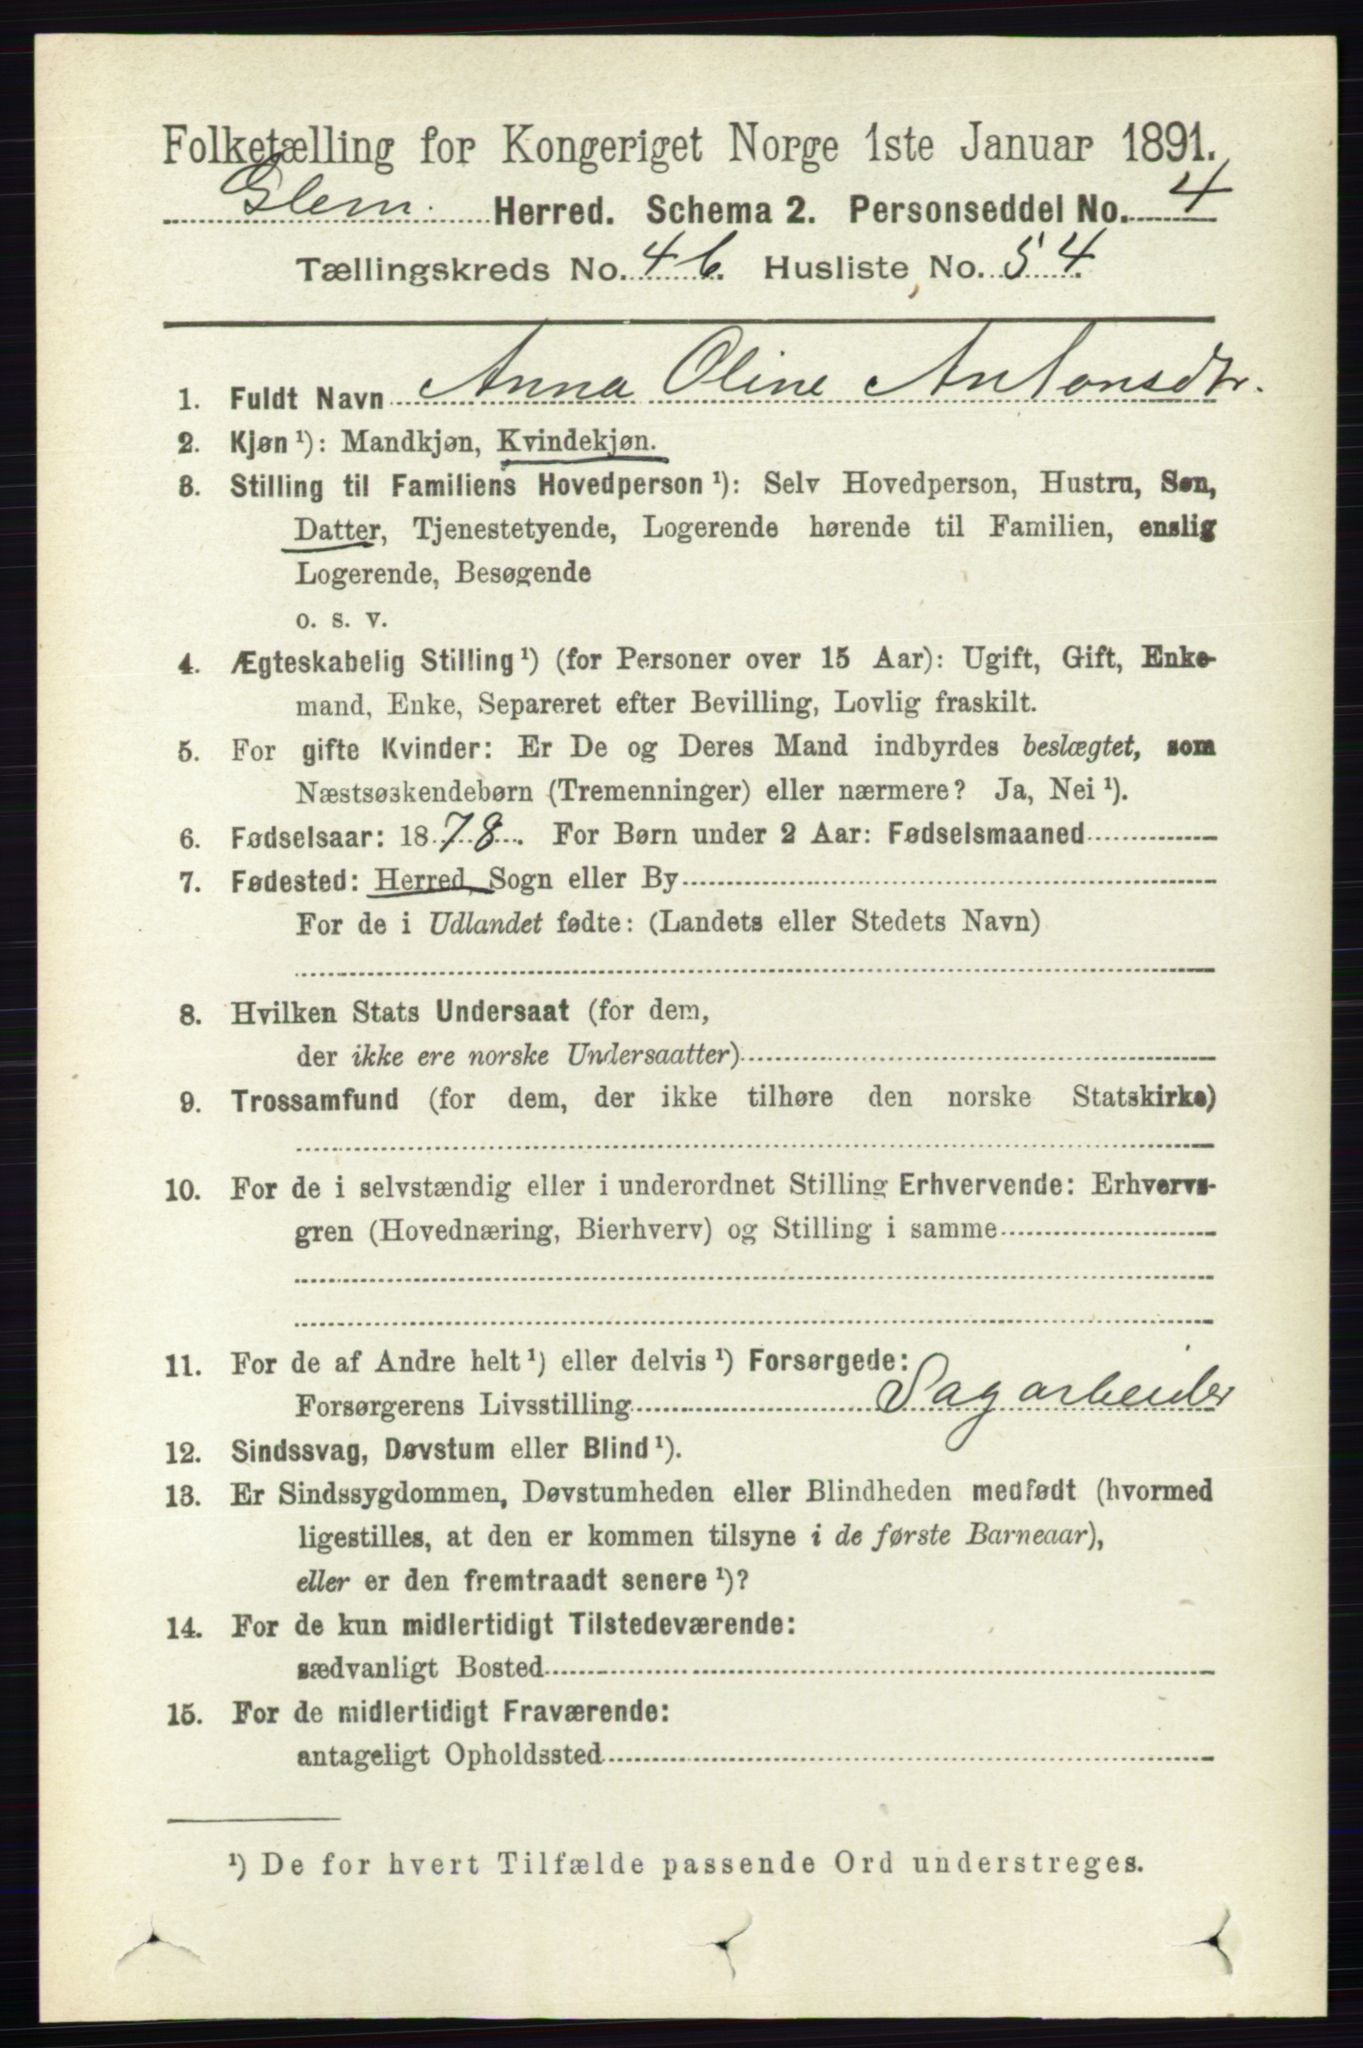 Folketælling for Kongeriget Norge 1ste Januar 1891.
Glem. Herred. Schema 2. Personseddel No. 4
Tællingskreds No. 4 b. Husliste No. 54.
1. Fuldt Navn Anna Oline Antonsdtr.
2. Kjøn ¹): Mandkjøn, Kvindekjøn.
3. Stilling til Familiens Hovedperson ¹): Selv Hovedperson, Hustru, Søn,
Datter, Tjenestetyende, Logerende hørende til Familien, enslig
Logerende, Besøgende
o. s. v.
4. Ægteskabelig Stilling ¹) (for Personer over 15 Aar): Ugift, Gift, Enke-
mand, Enke, Separeret efter Bevilling, Lovlig fraskilt.
5. For gifte Kvinder: Er De og Deres Mand indbyrdes beslægtet, som
Næstsøskendebørn (Tremenninger) eller nærmere? Ja, Nei ¹).
6. Fødselsaar: 1878. For Børn under 2 Aar: Fødselsmaaned
7. Fødested: Herred, Sogn eller By
For de i Udlandet fødte: (Landets eller Stedets Navn)
8. Hvilken Stats Undersaat (for dem,
der ikke ere norske Undersaatter)
9. Trossamfund (for dem, der ikke tilhøre den norske Statskirke)
10. For de i selvstændig eller i underordnet Stilling Erhvervende: Erhvervs-
gren (Hovednæring, Bierhverv) og Stilling i samme
11. For de af Andre helt ¹) eller delvis ¹) Forsørgede:
Forsørgerens Livsstilling Sagarbeider
12. Sindssvag, Døvstum eller Blind ¹).
13. Er Sindssygdommen, Døvstumheden eller Blindheden medfødt (hvormed
ligestilles, at den er kommen tilsyne i de første Barneaar),
eller er den fremtraadt senere ¹)?
14. For de kun midlertidigt Tilstedeværende:
sædvanligt Bosted
15. For de midlertidigt Fraværende:
antageligt Opholdssted
¹) De for hvert Tilfælde passende Ord understreges.